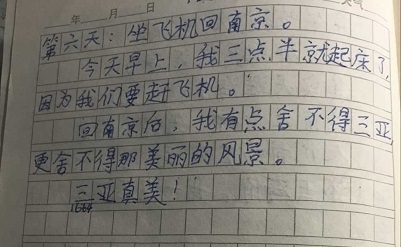 年 月 日 天气
第六天：坐飞机回南京。
今天早上，我三点半就起床了，
因为我们要赶飞机。
回南京后，我有点舍不得三亚，
更舍不得那美丽的风景。
三亚真美！